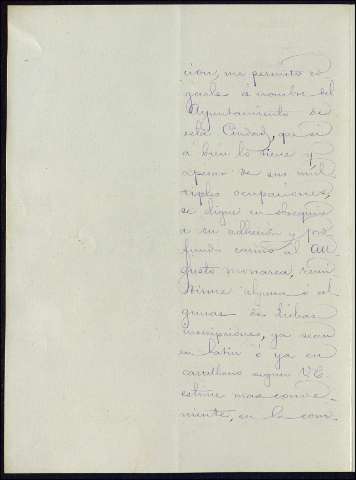 ción, me permito ro
garle á nombre del
Ayuntamiento de
esta Ciudad, que si
á bien lo tiene y
apesar de sus múl
tiples ocupaciones,
se digne en obsequio
a su adhesión y pro
fundo cariño al au
gusto monarca, remi
tirme alguna ó al
gunas de dichas
inscripciones, ya sean
en latín ó ya en
castellano segun V.E.
estime mas conve
niente, en la com-